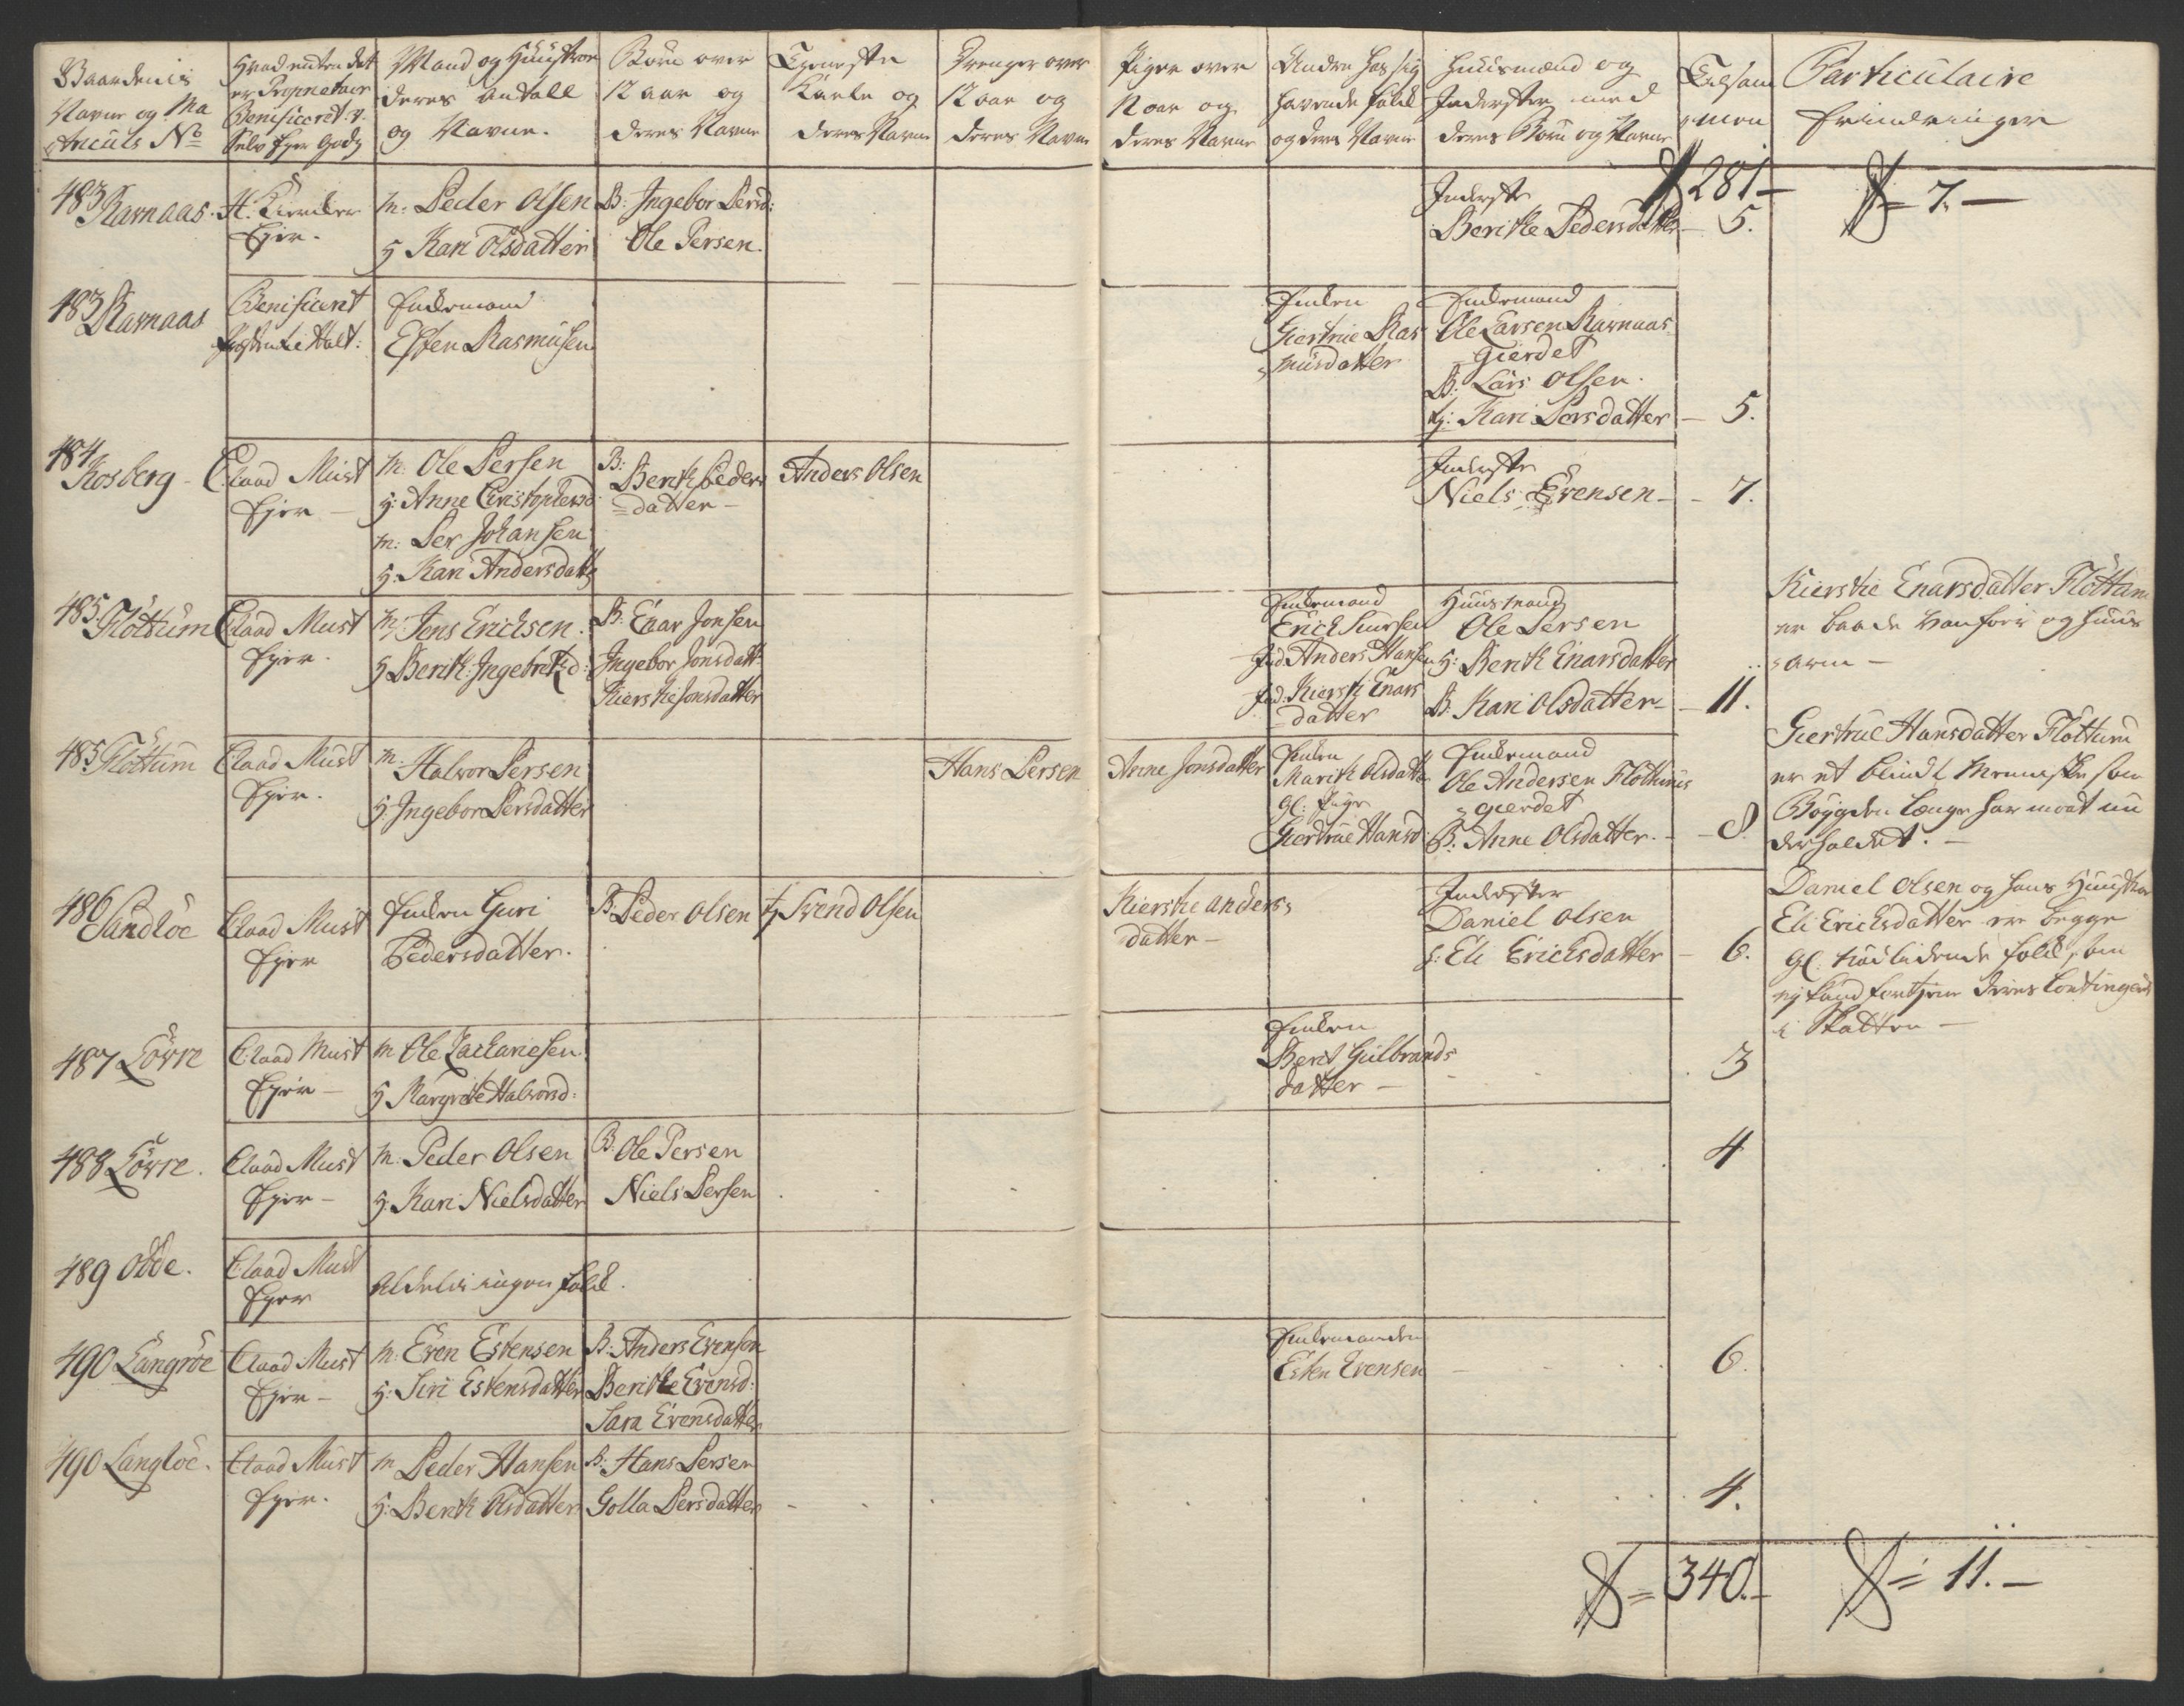 Gaardenis
Navne og Ma
triculs No
Hvad enten det
er Proprietair
Benificeret v.
Selv Eyer Gods
Mand og Hustroe
deres Antall
og Navne.
Børn over
12 aar og
deres Navne
Tieneste
Karle og
deres Navne
Drenger over
12 aar og
deres Navne
Piger over
12 aar og
deres Navne
Andre hos sig
havende folk
og deres Navne
Huusmænd og
Inderster med
deres Børn og Navne
Tilsam
men
Particulaire
Erindringer
281 –
7. –
483 Ramaas.
Eyer.
M: Peder Olsen
H Kari Olsdatter
B: Ingebor Persd:
Ole Persen.
Inderste
Beritke Pedersdatter – 5.
483 Ramaas
Benificeret
Enkemand
Esten Rasmusen
Enken
Giertrue Ras
musdatter
Enkemand
Ole Larsen Ramaas
gierdet
B: Lars Olsen.
tj: Kari Persdatter – 5.
484 Rosberg –
Claad Must
Eyer –
M: Ole Persen
H: Anne Christophersd
M: Per Johansen
H: Kari Andersdatt
B:
Berit Peders
datter –
Anders Olsen
Inderste
Niels Evensen – – 7.
485 Flöttum
Claad Must
Eyer.
M: Jens Ericksen.
H Berit: Ingebretsd:
B: Enar Jonsen
Ingebor Jonsdatt
Kierstie Jonsdatter
Enkemand
Erick Siursen
Ind: Anders Hansen
Ind: Kiersti Enars
datter
Huusmand
Ole Persen
H: Berit Enarsdatter
B: Kari Olsdatter – – 11.
Kierstie Enarsdatter Flöttum
er baade vanför og huus
arm –
485 Flöttum
Claad Must
Eyer.
M:
Halvor Persen
H: Ingebor Persdatter
Hans Persen
Anne Jonsdatter
Enken
Marit Olsdatter
gl: Pige
Giertrue Hansd:
Enkemand
Ole Andersen Flöttums
gierdet
B: Anne Olsdatter. – – 8.
Giertrue Hansdatter Flöttum
er et blindt Menniske som
Böygden længe har maat un
derholdet. –
486 Sandlöe
Claad Must
Eyer
Enken Guri
Pedersdatter.
B: Peder Olsen
tj Svend Olsen
Kierstie Anders
datter –
Inderster
Daniel Olsen
H: Eli Ericksdatter – 6.
Daniel Olsen og hans Hustroe
Eli Ericksdatter er begge
gl: nödlidende folk, som
ej kand fortjene deres Contingent
i Skatten –
487 Lövre
Claad Must
Eyer –
M Ole Zachariesen
H Margrete Halvorsd:
Enken
Berit Gulbrands
datter –
3
488 Lövre.
Claad Must
Eyer –
M: Peder Olsen
H: Kari Nielsdatter
B: Ole Persen
Niels Persen
4
489 Odde.
Claad Must
Eyer
Aldeles ingen folk.
490 Langröe
Claad Must
Eyer –
M: Even Estensen
H: Siri Estensdatter
B: Anders Evensen
Beritke Evensd:
Sara Evensdatter
Enkemanden
Esten Evensen
6.
490 Langlöe.
Claad Must
Eyer.
M Peder Hansen
H: Berit Olsdatter
B: Hans Persen
Golla Persdatter
4.
340. –
11. –